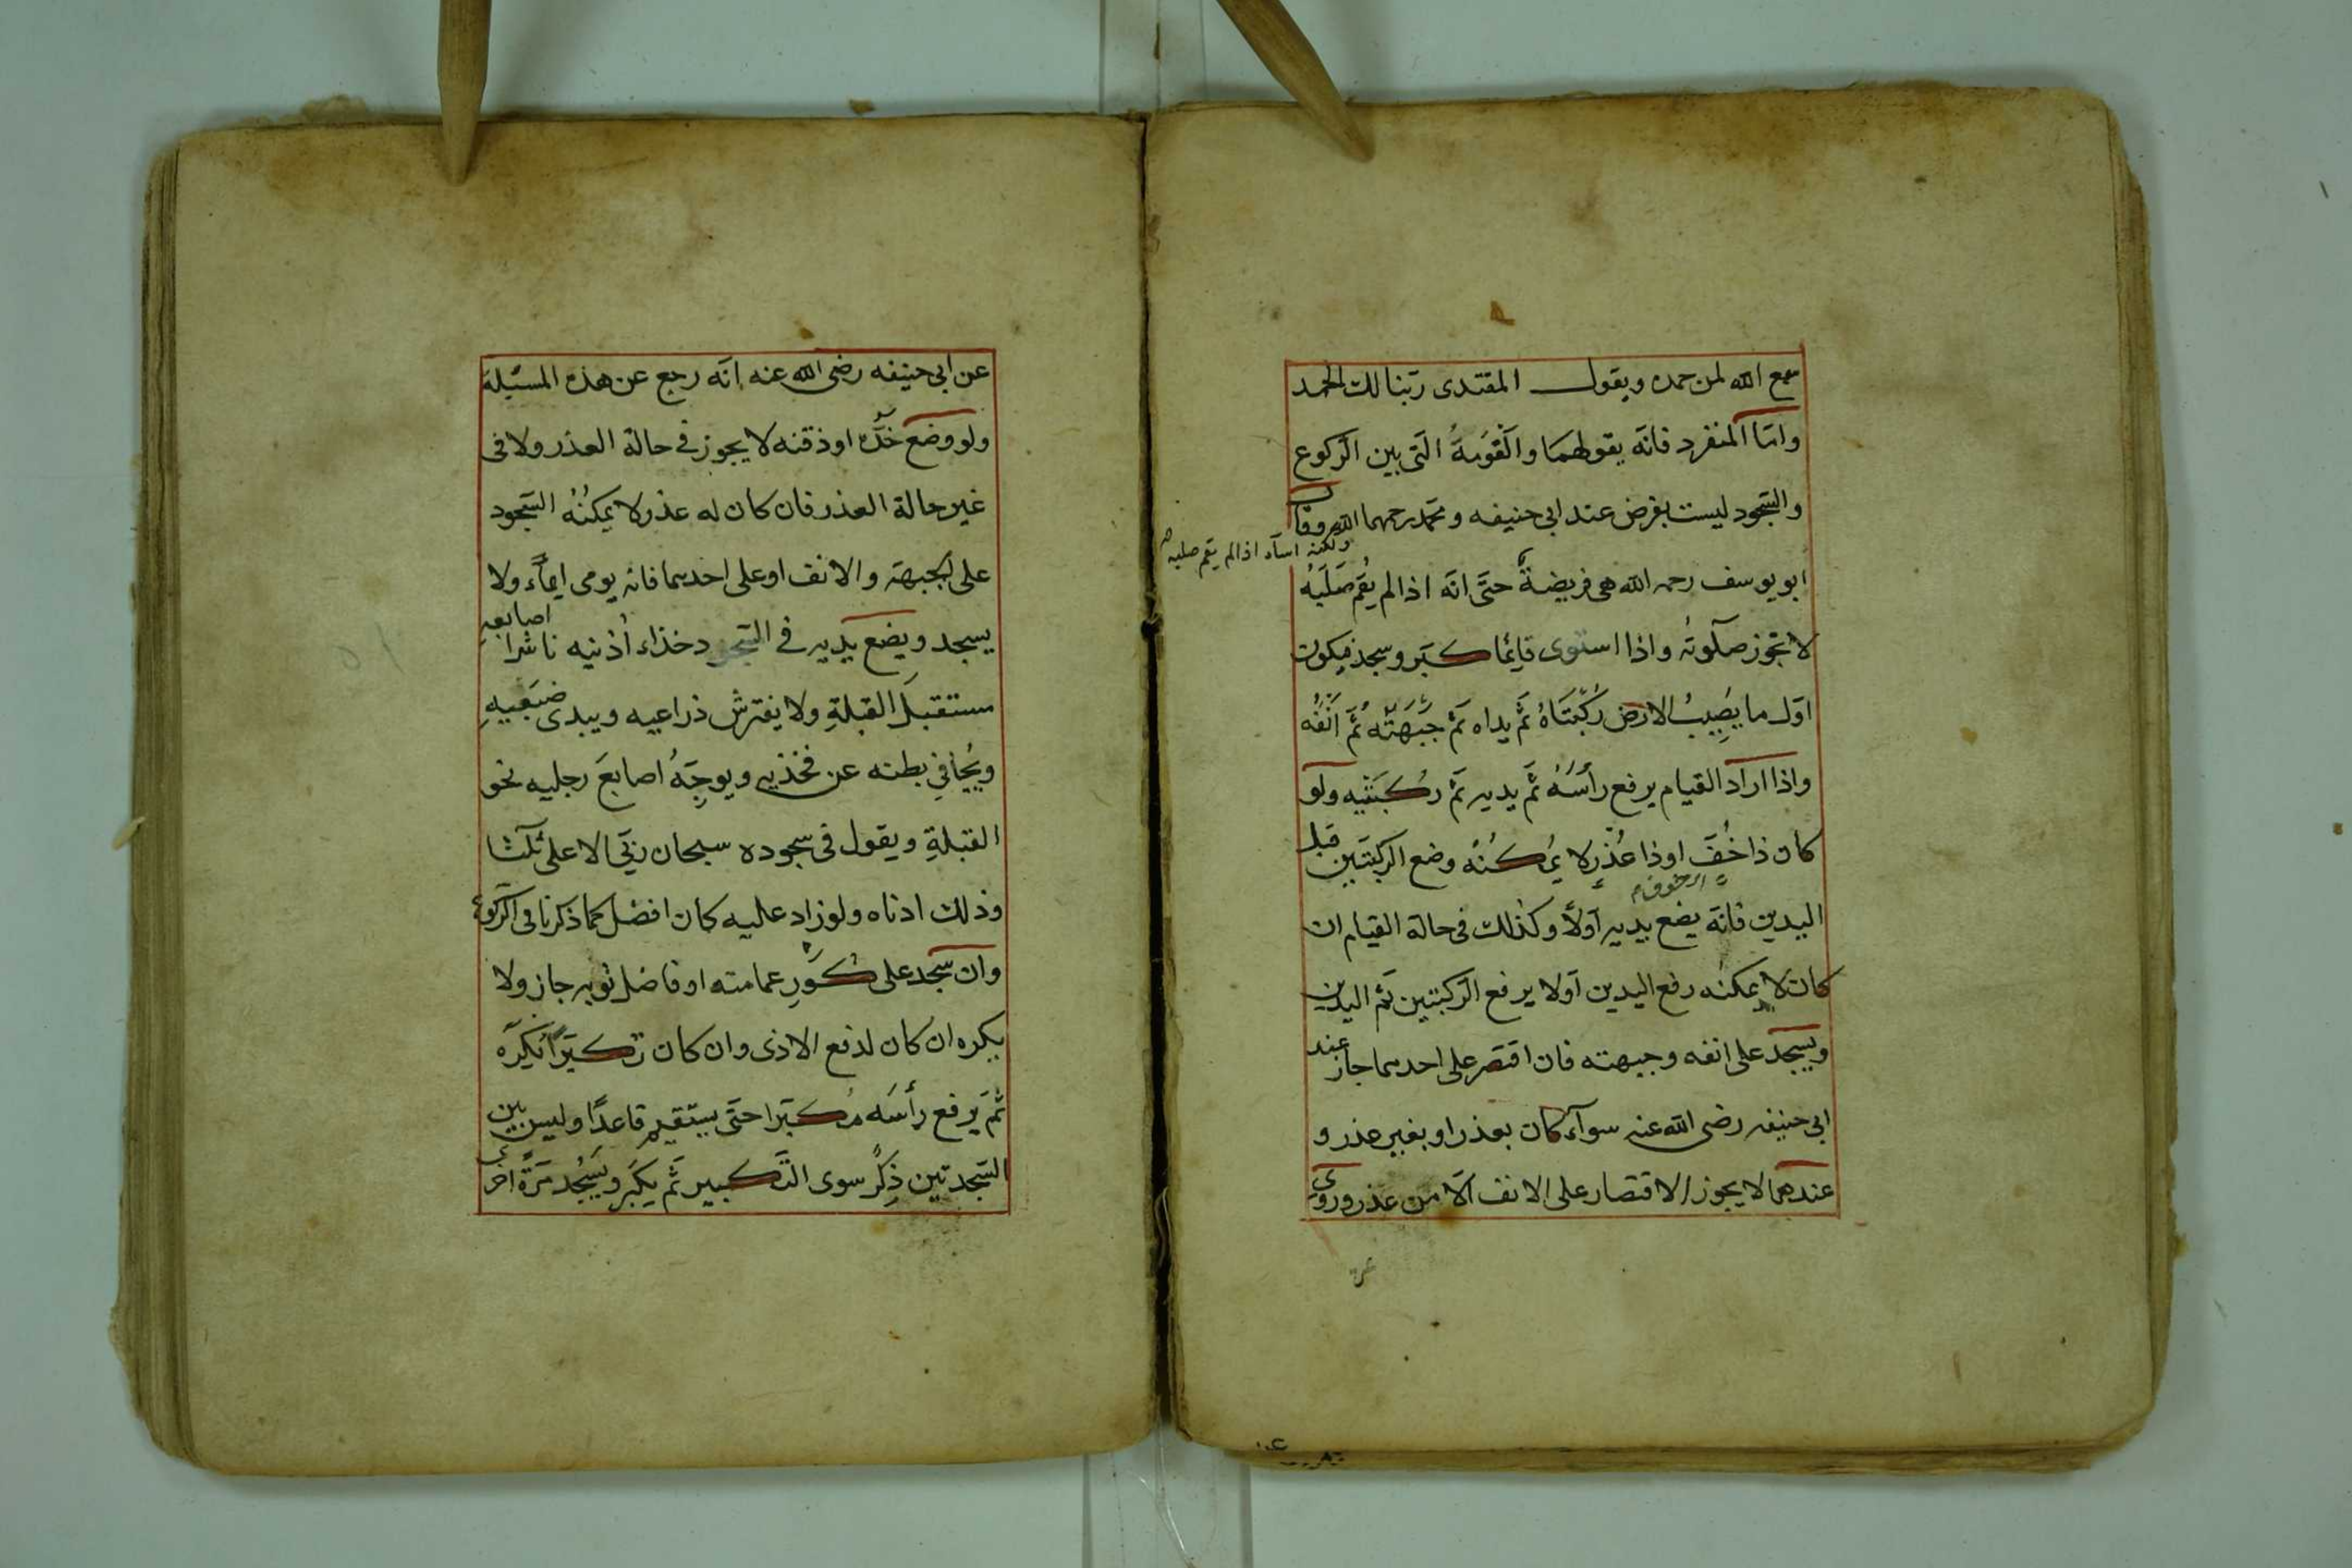 سمع الله لمن حمده ويقول المقتدى ربّنا لك الحمد
وامّا المنفرد فانّه يقولهمَا والْقَوْمَةُ الّتى بين الرّكوع
والسّجود ليست بفرض عند ابى حنيفه ومحمّد رحمهما الله وقال
ولكنه اسآء اذا لم يقم صلبه
ابو يوسف رحمه الله هى فريضةٌ حتّى انّه اذا لم يُقِم صُلْبَهُ
لا تجوز صلوتُه واذا استوى قائِمًا كبّر وسجد فيكون
اوّل ما يُصِيبُ الارض رُكْبَتَاهُ ثمّ يداه ثمّ جَبْهَتُه ثمّ اَنْفُه
واذا اراد القيام يرفع رأسَهُ ثمّ يديه ثمّ رُكبَتَيه ولو
كان ذا خُفٍّ او ذا عُذْرٍ لا يُمكنُه وضع الركبتَين قبل
اليدين فانّه يضع يديه اوّلاً وكذلك فى حالة القيام ان
كان لا يمكنه رفع اليدين اوّلا يرفع الرّكبتين ثمّ اليدين
ويسجد على انفه وجبهته فان اقتصر على احدهما جاز عند
ابى حنيفه رضى الله عنه سوآء كان بعذر او بغير عذر و
عندهما لا يجوز الاقتصار على الانف الّا من عذر وروى
عن ابى حنيفه رضى الله عنه انّه رجع عن هذه المسئلة
ولو وضع خدّه او ذقنه لا يجوز فى حالة العذر ولا فى
غير حالة العذر فان كان له عذر لا يمكنُهُ السّجود
على الجبهة والانف او على احدهما فانه يومى ايمآءً ولا
يسجد ويضع يديه فى السّجود حذاء اُذنيه ناشرا اصابعه
مستقبلَ القبلةِ ولا يفترش ذراعيه ويبدى ضَبْعَيهِ
ويُجافى بطنه عن فخذيه ويوجّهُ اصابعَ رجليه نحو
القبلةِ ويقول فى سجوده سبحان ربّى الاعلى ثلٰثا
وذلك ادناه ولو زاد عليه كان افضل كما ذكرنا فى الرّكوع
وان سجد على كَوْرِ عمامته او فاضل ثوبه جاز ولا
يكره ان كان لدفع الاذى وان كان تكبّرًا يكره
ثمّ يرفع رأسَه مُكبّرا حتى يستقيم قاعدًا وليس بين
السّجدتين ذِكْرٌ سوى التّكبير ثمّ يكبّر ويَسْجُد مرّةً اخرى